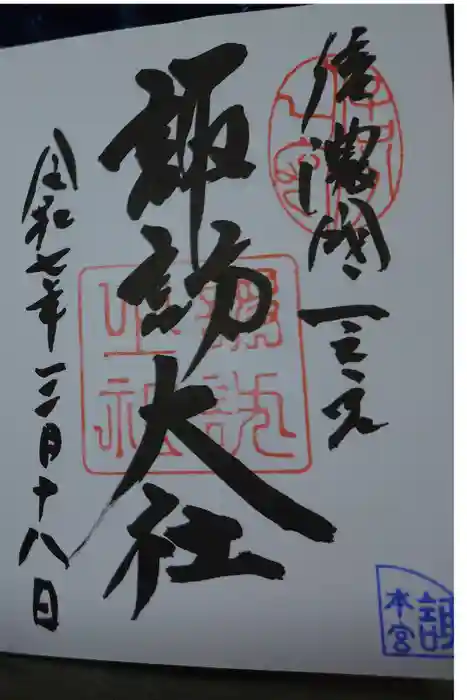 信濃國一之宮
諏訪大社
令和七年一二月十八日
諏訪大社
本宮